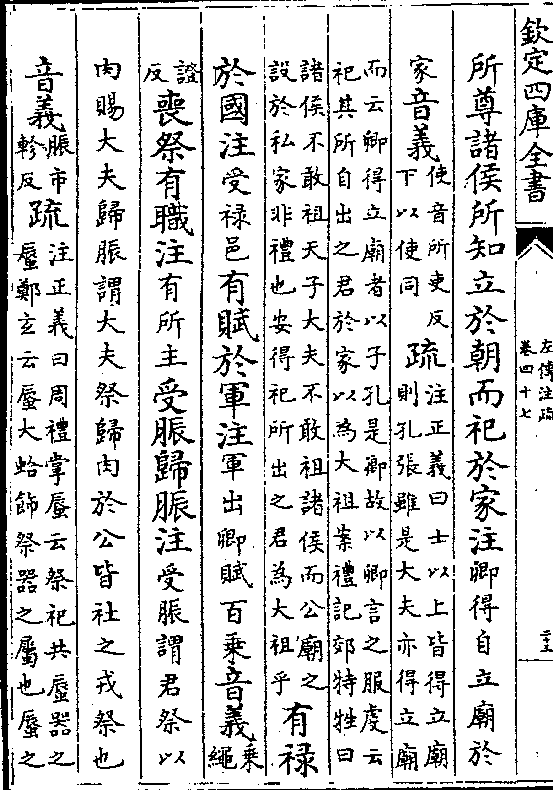 欽定四庫全書
左傳注疏
卷四十七
所尊諸侯所知立於朝而祀於家注卿得自立廟於
家音義使音所吏反
下以使同疏注正義曰士以上皆得立廟
則孔張雖是大夫亦得立廟
而云卿得立廟者以子孔是卿故以卿言之服虔云
祀其所自出之君於家以為大祖案禮記郊特牲曰
諸侯不敢祖天子大夫不敢祖諸侯而公廟之
設於私家非禮也安得祀所出之君為大祖乎有禄
於國注受禄邑有賦於軍注軍出卿賦百乘音義乘
繩
證
反喪祭有職注有所主受脤歸脤注受脤謂君祭以
肉賜大夫歸脤謂大夫祭歸肉於公皆社之戎祭也
音義脤市
軫反疏注正義曰周禮掌蜃云祭祀共蜃器之
蜃鄭玄云蜃大蛤飾祭器之屬也蜃之